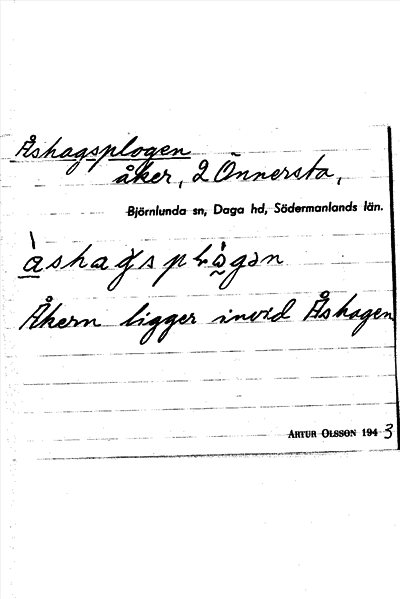 Åshagsplogen
åker, 2 Önnersta,
Björnlunda sn, Daga hd, Södermanlands län.
Åkern ligger invid Åshagen
ARTUR OLSSON 1943